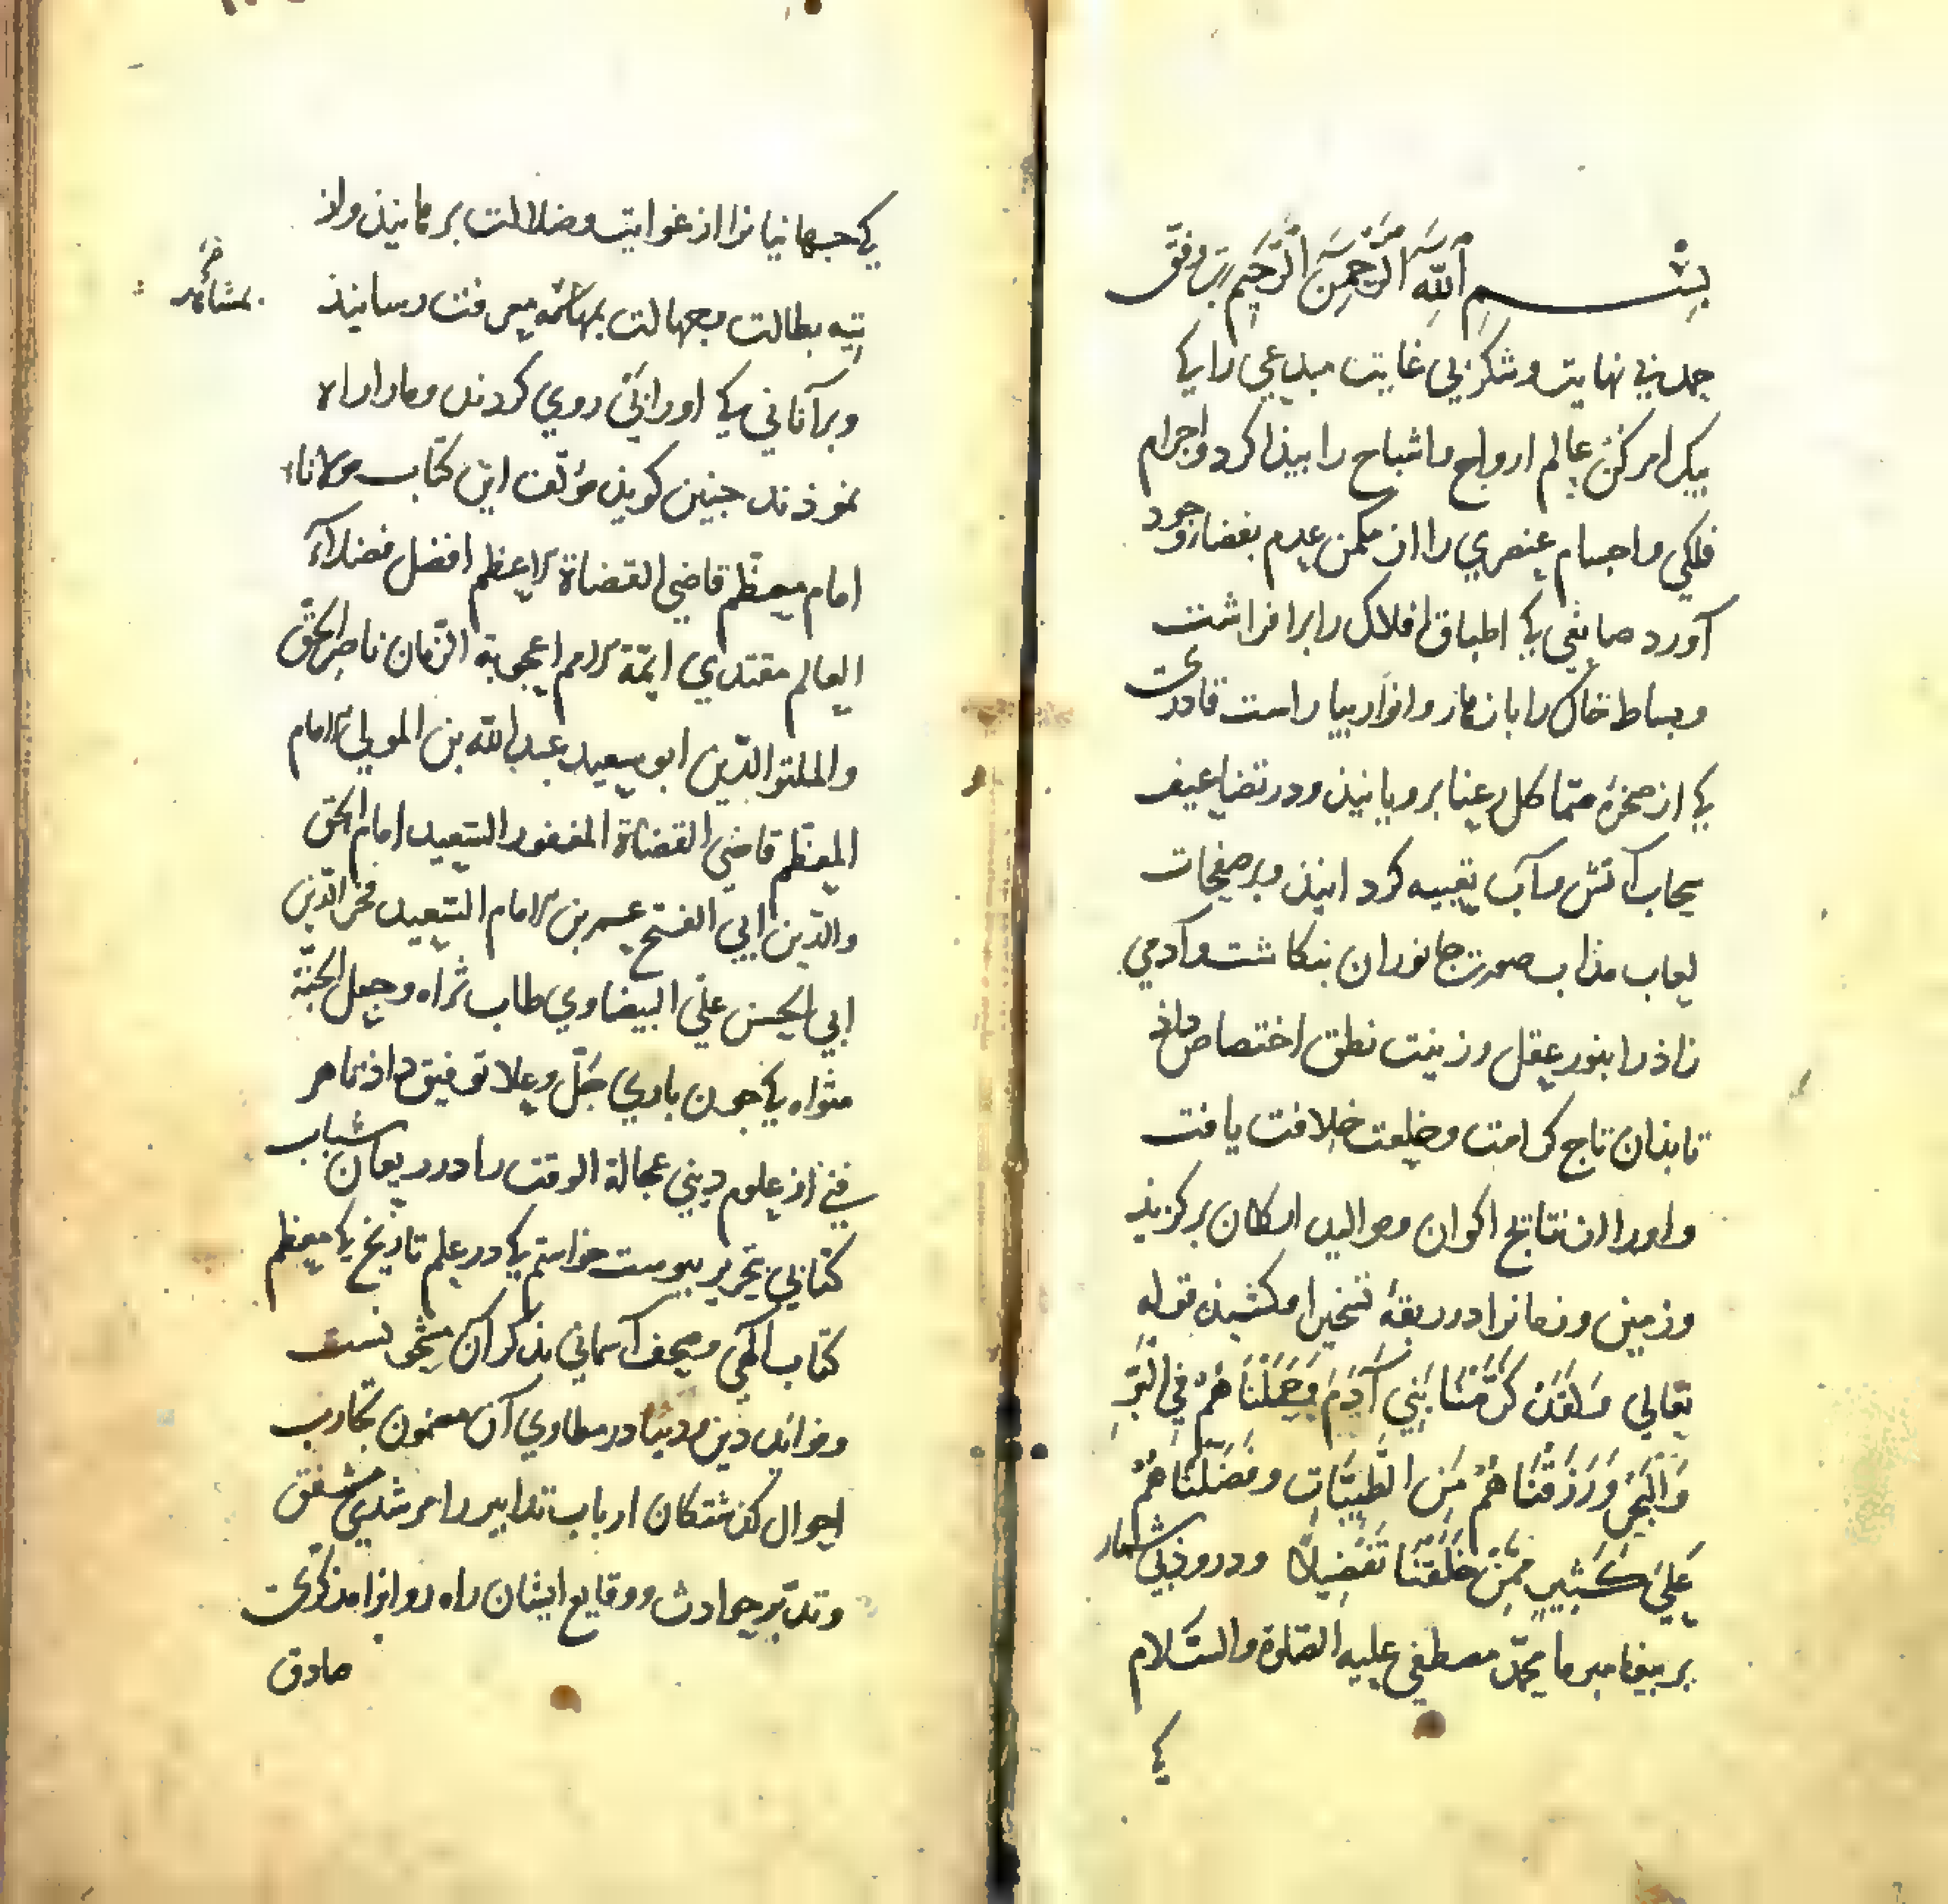 بسم الله الرحمن الرحیم رب وفق
حمد بی نهایت و شکر بی غایت مبدعی را کی
بیک امر کن عالم ارواح و اشباح را بیذا کرد و اجرام
فلکی و اجسام عنصری را از مکمن عدم بفضاء وجود
آورد صانعی کی اطباق افلاک را برافراشت
و بساط خاک را بازهار و انوار بیاراست قادری
کی از صخرهٔ صما کل رعنا برویانیذ و در تضاعیف
سحاب آتش و آب تعبیه کردانیذ و بر صفحات
لعاب مذاب صورت جانوران بنکاشت و آدمی
زاذ را بنور عقل و زینت نطق اختصاص داذ
تا بذان تاج کرامت و خلعت خلافت یافت
و او را از نتایج اکوان و موالید امکان برکزیذ
و زمین و زمانرا در ربقهٔ تسخیر او کشیذ قوله
تعالی وَلَقَدْ كَرَّمْنَا بَنِي آدَمَ وَحَمَلْنَاهُمْ فِي الْبَرِّ
وَالْبَحْرِ وَرَزَقْنَاهُمْ مِنَ الطَّيِّبَاتِ وَفَضَّلْنَاهُمْ
عَلَى كَثِيرٍ مِمَّنْ خَلَقْنَا تَفْضِيلًا و دروذ بی شمار
بر بیغامبر ما محمد مصطفی علیه الصلوة والسلام
کی
کی جهانیانرا از غوایت و ضلالت برهانیذ و از
تیه بطالت و جهالت بمهائمه معرفت رسانیذ
بمشاهد
و بر آنانی کی او را بی روی کردند و ما را راه
نموذند جنین کویذ مؤلف این کتاب مولانا
امام معظم قاضی القضاة الاعظم افضل فضلاء
العالم مقتدی ایمة الامم اعجوبة الزمان ناصر الحق
والملة والدین ابو سعید عبد الله بن المولی الامام
المعظم قاضی القضاة المغفور السعید امام الحق
والدین ابی الفتح عمر بن الامام السعید فخر الدین
ابی الحسن علی البیضاوی طاب ثراه و جعل الجنة
مثواه کی جون باری جل و علا توفیق داذ تا هر
فنی از علوم دینی عجالة الوقت را در ریعان شباب
کتابی بتحریر بیوست خواستم کی در علم تاریخ کی معظم
کتاب الهی و صحف آسمانی بذکر آن مشحونست
و فوائد دین و دنیا در مطاوی آن مضمون تجارب
احوال کذشتکان ارباب تدابیر را مرشدی مشفق
و تدبر حوادث و وقایع ایشان راه روانرا مذکری
صادق